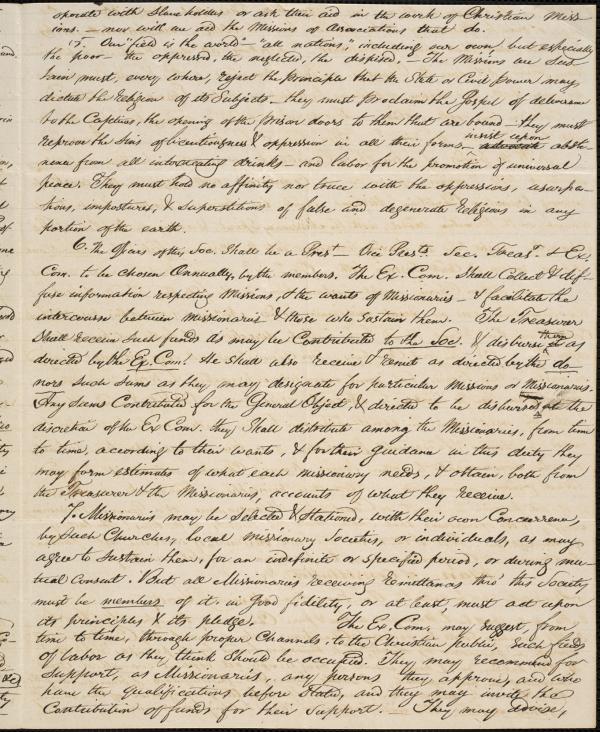 operate with Slaveholders or ask their aid in the work of Christian Miss
ions. — nor will we aid the Missions of Associations that do.
5. Our field is the world — "all nations," including our own, but especially
the poor — the oppressed, the neglected, the dispised. — The Missions we Sus
tain must, every where, reject the principle that the State or Civil power may
dictate the Religion of its Subjects — they must proclaim the Gospel of deliverance
to the Captives, the opening of the prison doors to them that are bound — they must
reprove the Sins of licentiousness & oppression in all their forms, insist upon advocate absti-
nence from all intoxicating drinks — and labor for the promotion of universal
peace. They must hold no affinity nor truce with the oppressions, usurpa-
tions, impostures, & Superstitions of false and degenerate Religions in any
portion of the earth.
6. The Officers of this Soc. Shall be a Prest — Vice Prests. Sec. Treasr. & Ex.
Com. to be chosen Annually, by the members. The Ex. Com. Shall Collect & dif-
fuse information respecting Missions, & the wants of Missionaries — & facilitate the
intercourse between Missionaries & those who Sustain them. The Treasurer
Shall receive Such funds as may be Contributed to the Soc. & disburse them as
directed by the Ex. Com. He shall also receive & remit as directed by the do-
nors Such Sums as they may designate for particular Missions or Missionaries.
Any Sums Contributed for the General Object, & directed to be disbursed at the
discretion of the Ex Com. they Shall distribute among the Missionaries, from time
to time, according to their wants, & for their guidance in this duty they
may form estimates of what each missionary needs, & obtain, both from
the Treasurer & the Missionaries, accounts of what they receive.
7. Missionaries may be Selected & Stationed, with their own Concurrence,
by Such Churches, local missionary Societies, or individuals, as may
agree to Sustain them, for an indefinite or specified period, or during mu-
tual Consent. But all Missionaries receiving Remittances thro' this Society
must be members of it, in good fidelity, or at least, must act upon
its principles & its pledge. The Ex. Com. may suggest, from
time to time, through proper Channels, to the Christian public, Such fields
of labor as they think Should be occupied. They may recommend for
Support, as Missionaries, any persons they approve, and who
have the qualifications before Stated, and they may invite the
Contribution of funds for their Support. — They may advise,